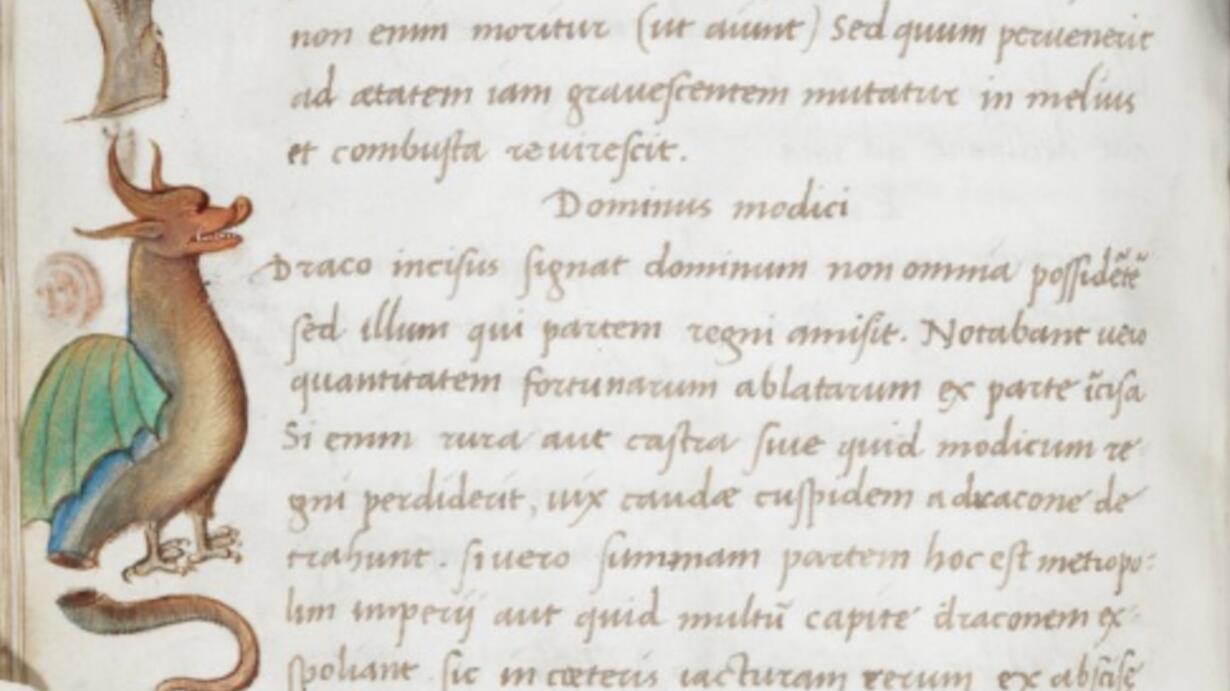 non enim moritur (ut aiunt) Sed quum peruenerit
ad ætatem iam grauescentem mutatur in melius
et combusta reuirescit.
Dominus modici
Draco incisus signat dominum non omnia possidẽtẽ
sed illum qui partem regni amisit. Notabant uero
quantitatem fortunarum ablatarum ex parte ĩcisa
Si enim rura aut castra siue quid modicum re
gni perdiderit, uix caudæ cuspidem a dracone de
trahunt. si uero summam partem hoc est metropo:
lim imperij aut quid multũ capite draconem ex
spoliant sic in cæteris iacturam rerum ex abscise